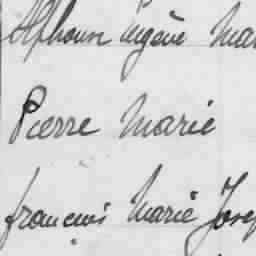 Alphonse Eugène Mar
Pierre Marie
françois Marie Josep